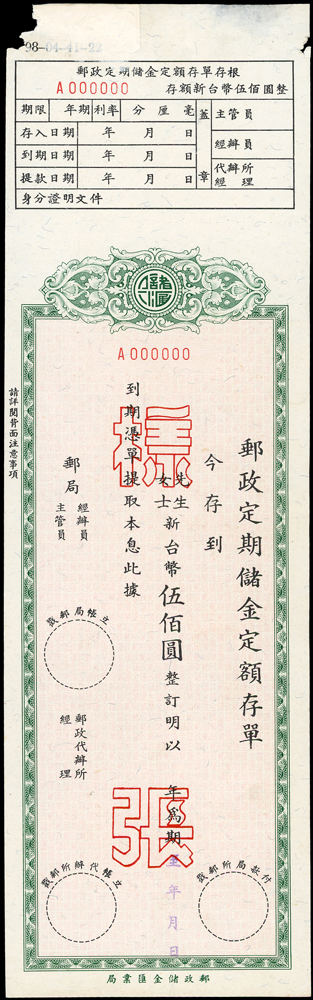 98-04-41-22
郵政定期儲金定額存單存根
A000000 存額新台幣伍佰圓整
期限 年期 利率 分 厘 毫
存入日期 年 月 日
到期日期 年 月 日
提款日期 年 月 日
蓋章
主管員
經辦員
代辦所經理
身分證明文件
A000000
郵政定期儲金定額存單
今存到
先生
女士
新台幣伍佰圓整訂明以 年為期
到期憑單提取本息此據
至 年 月 日
樣張
郵局
經辦員
主管員
立帳局郵戳
郵政代辦所
經理
立帳代辦所郵戳
付款局郵戳
請詳閱背面注意事項
郵政儲金匯業局